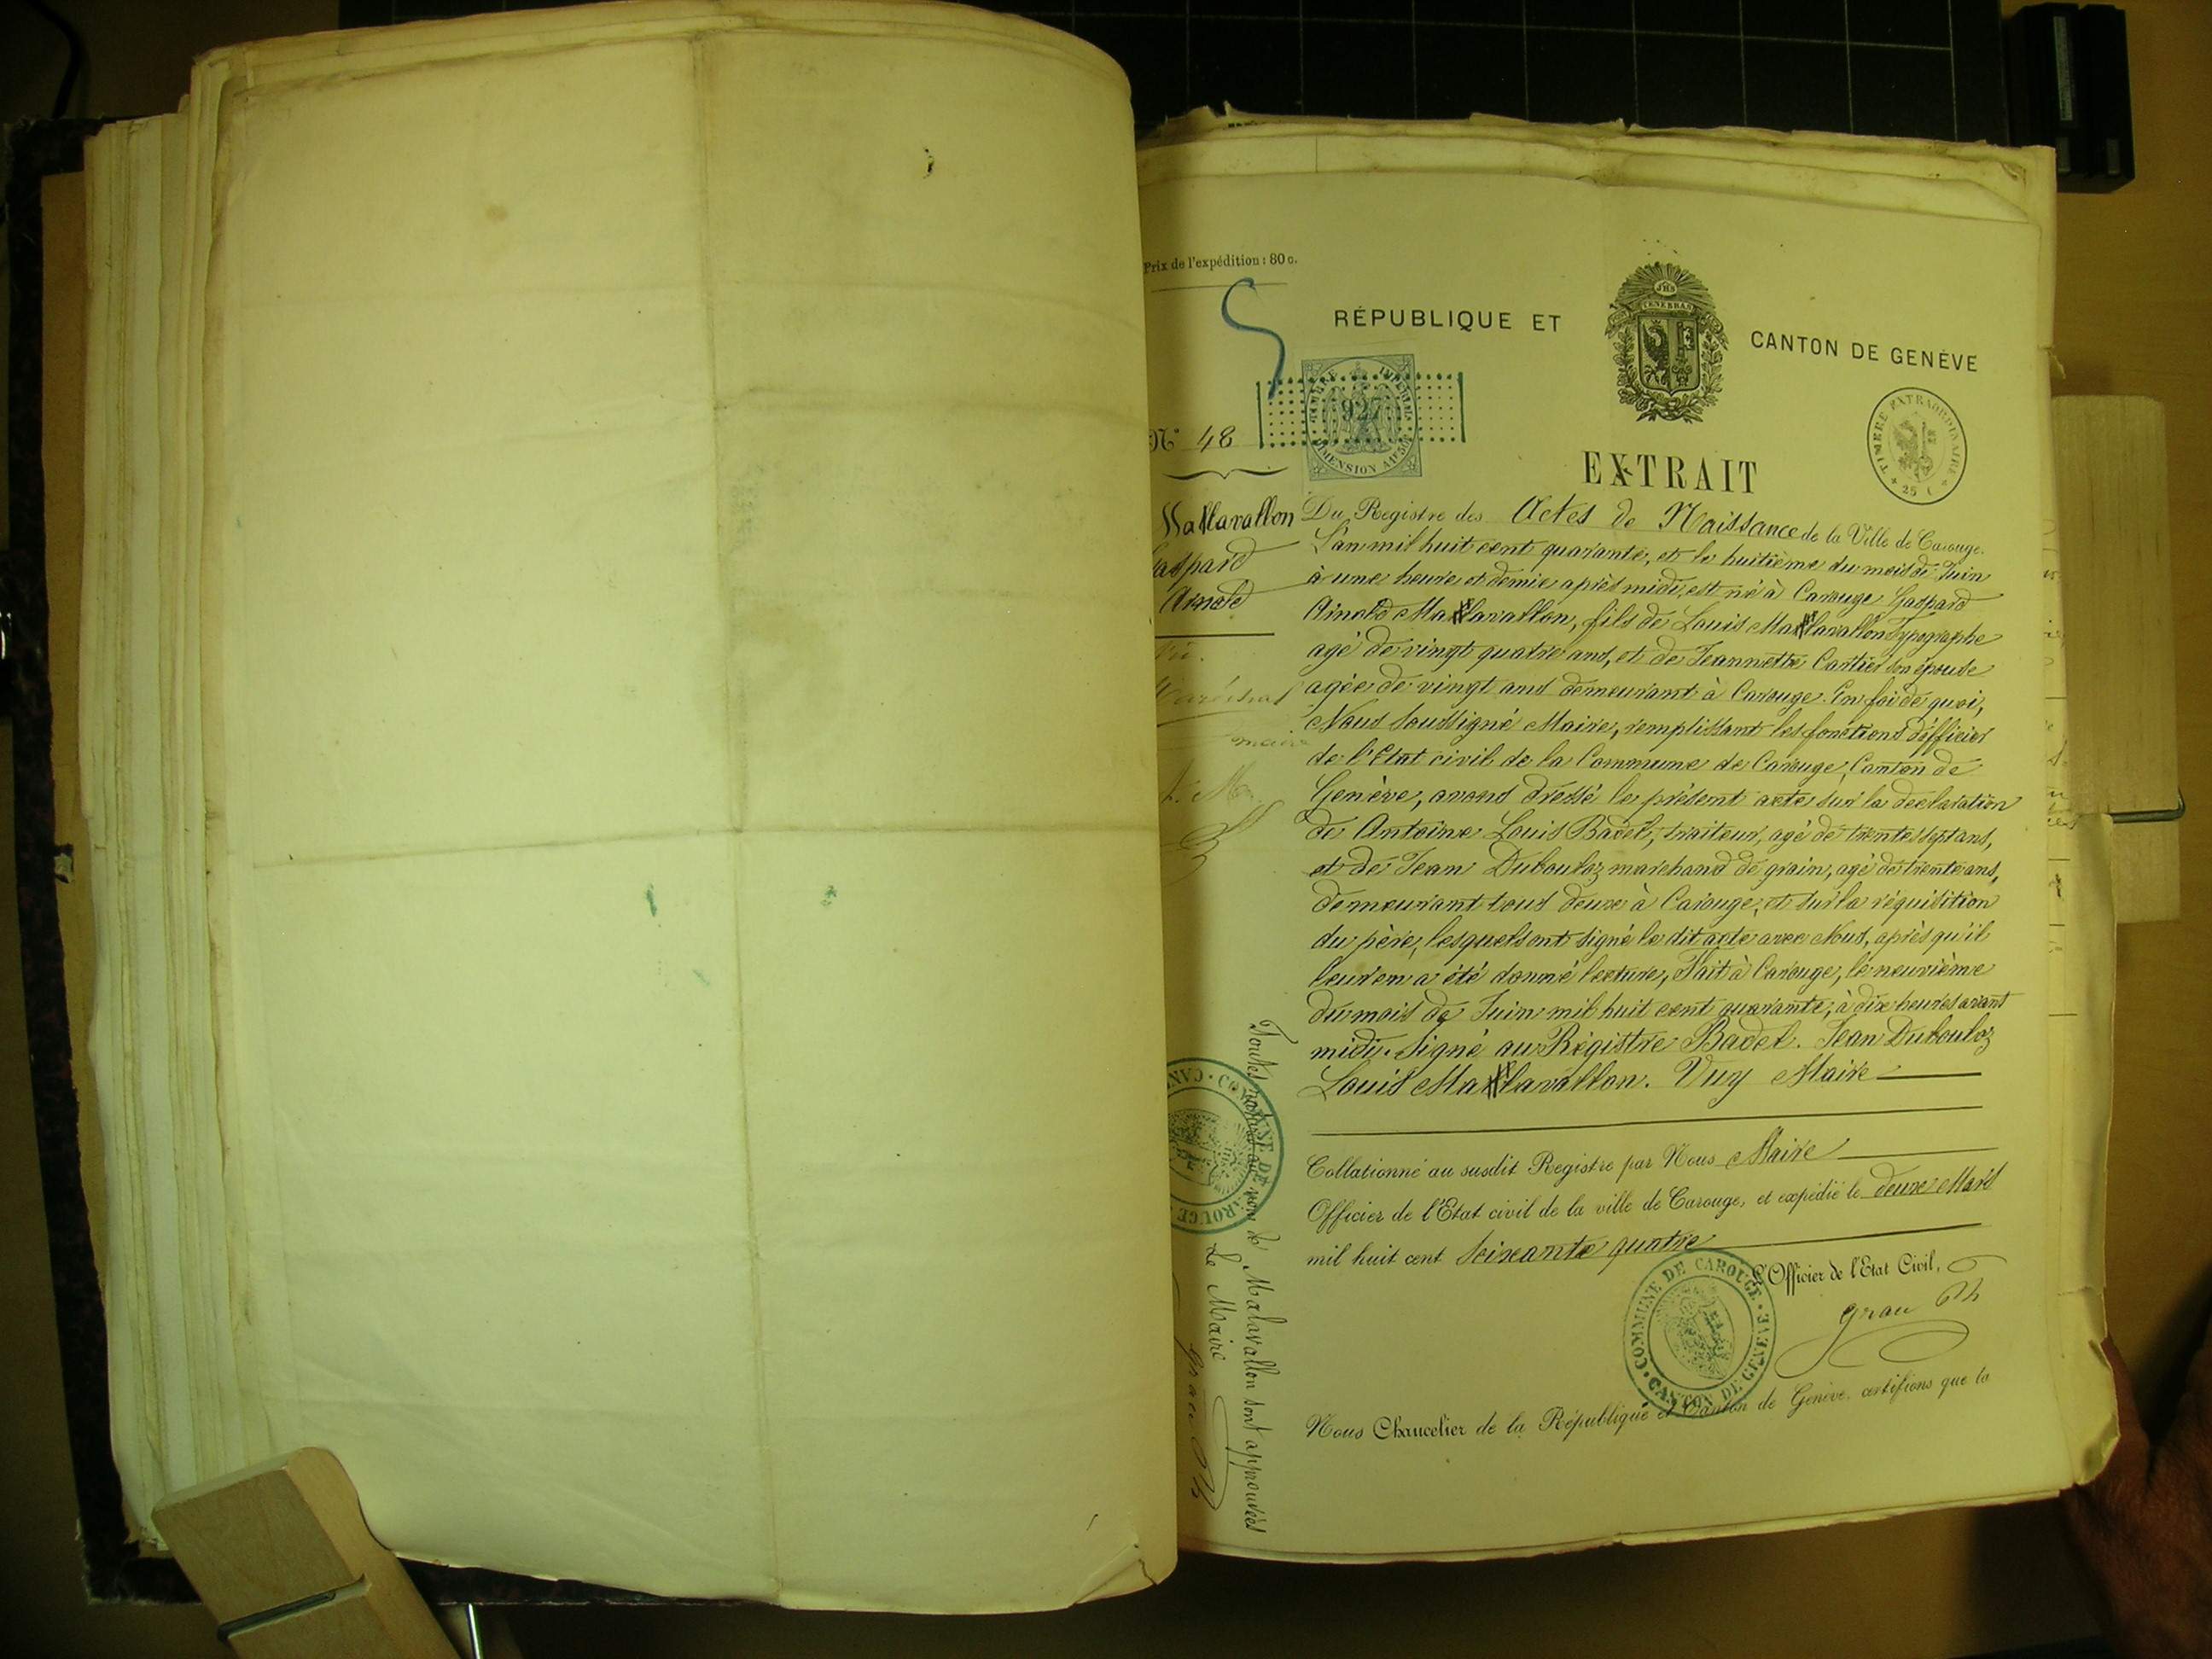 Prix de l'expédition : 80 c.
RÉPUBLIQUE ET
CANTON DE GENÈVE
JHS
TENEBRAS
TIMBRE IMPERIAL
927
DIMENSION
TIMBRE EXTRAORDINAIRE
25 C
N° 48
EXTRAIT
Mallavallon
Gaspard
Arnold
Du Registre des Actes de Naissance de la Ville de Carouge.
L'an mil huit cent quarante, et le huitième du mois de Juin
à une heure et demie après midi, est né à Carouge Gaspard
Arnold Mallavallon, fils de Louis Mallavallon Typographe
agé de vingt quatre ans, et de Jeannette Cartier son épouse
agée de vingt ans demeurant à Carouge. En foi de quoi,
Nous soussigné Maire, remplissant les fonctions d'officier
de l'Etat civil de la Commune de Carouge, Canton de
Genève, avons dressé le présent acte sur la declaration
de Antoine Louis Badel, traiteur, agé de trente sept ans,
et de Jean Dubouloz marchand de grain, agé de trente ans,
demeurant tous deux à Carouge, et sur la réquisition
du père, lesquels ont signé le dit acte avec Nous, après qu'il
leur en a été donné lecture, Fait à Carouge, le neuvième
du mois de Juin mil huit cent quarante, à dix heures avant
midi. Signé au Régistre Badel. Jean Dubouloz
Louis Mallavallon. Vuy Maire
Collationné au susdit Registre par Nous Maire
Officier de l'Etat civil de la ville de Carouge, et expédié le deux Mars
mil huit cent soixante quatre
L'Officier de l'Etat Civil,
Grau
COMMUNE DE CAROUGE
CANTON DE GENEVE
Nous Chancelier de la République et Canton de Genève, certifions que la
Toutes au nom de Malavallon sont approuvées
Le Maire
Grau